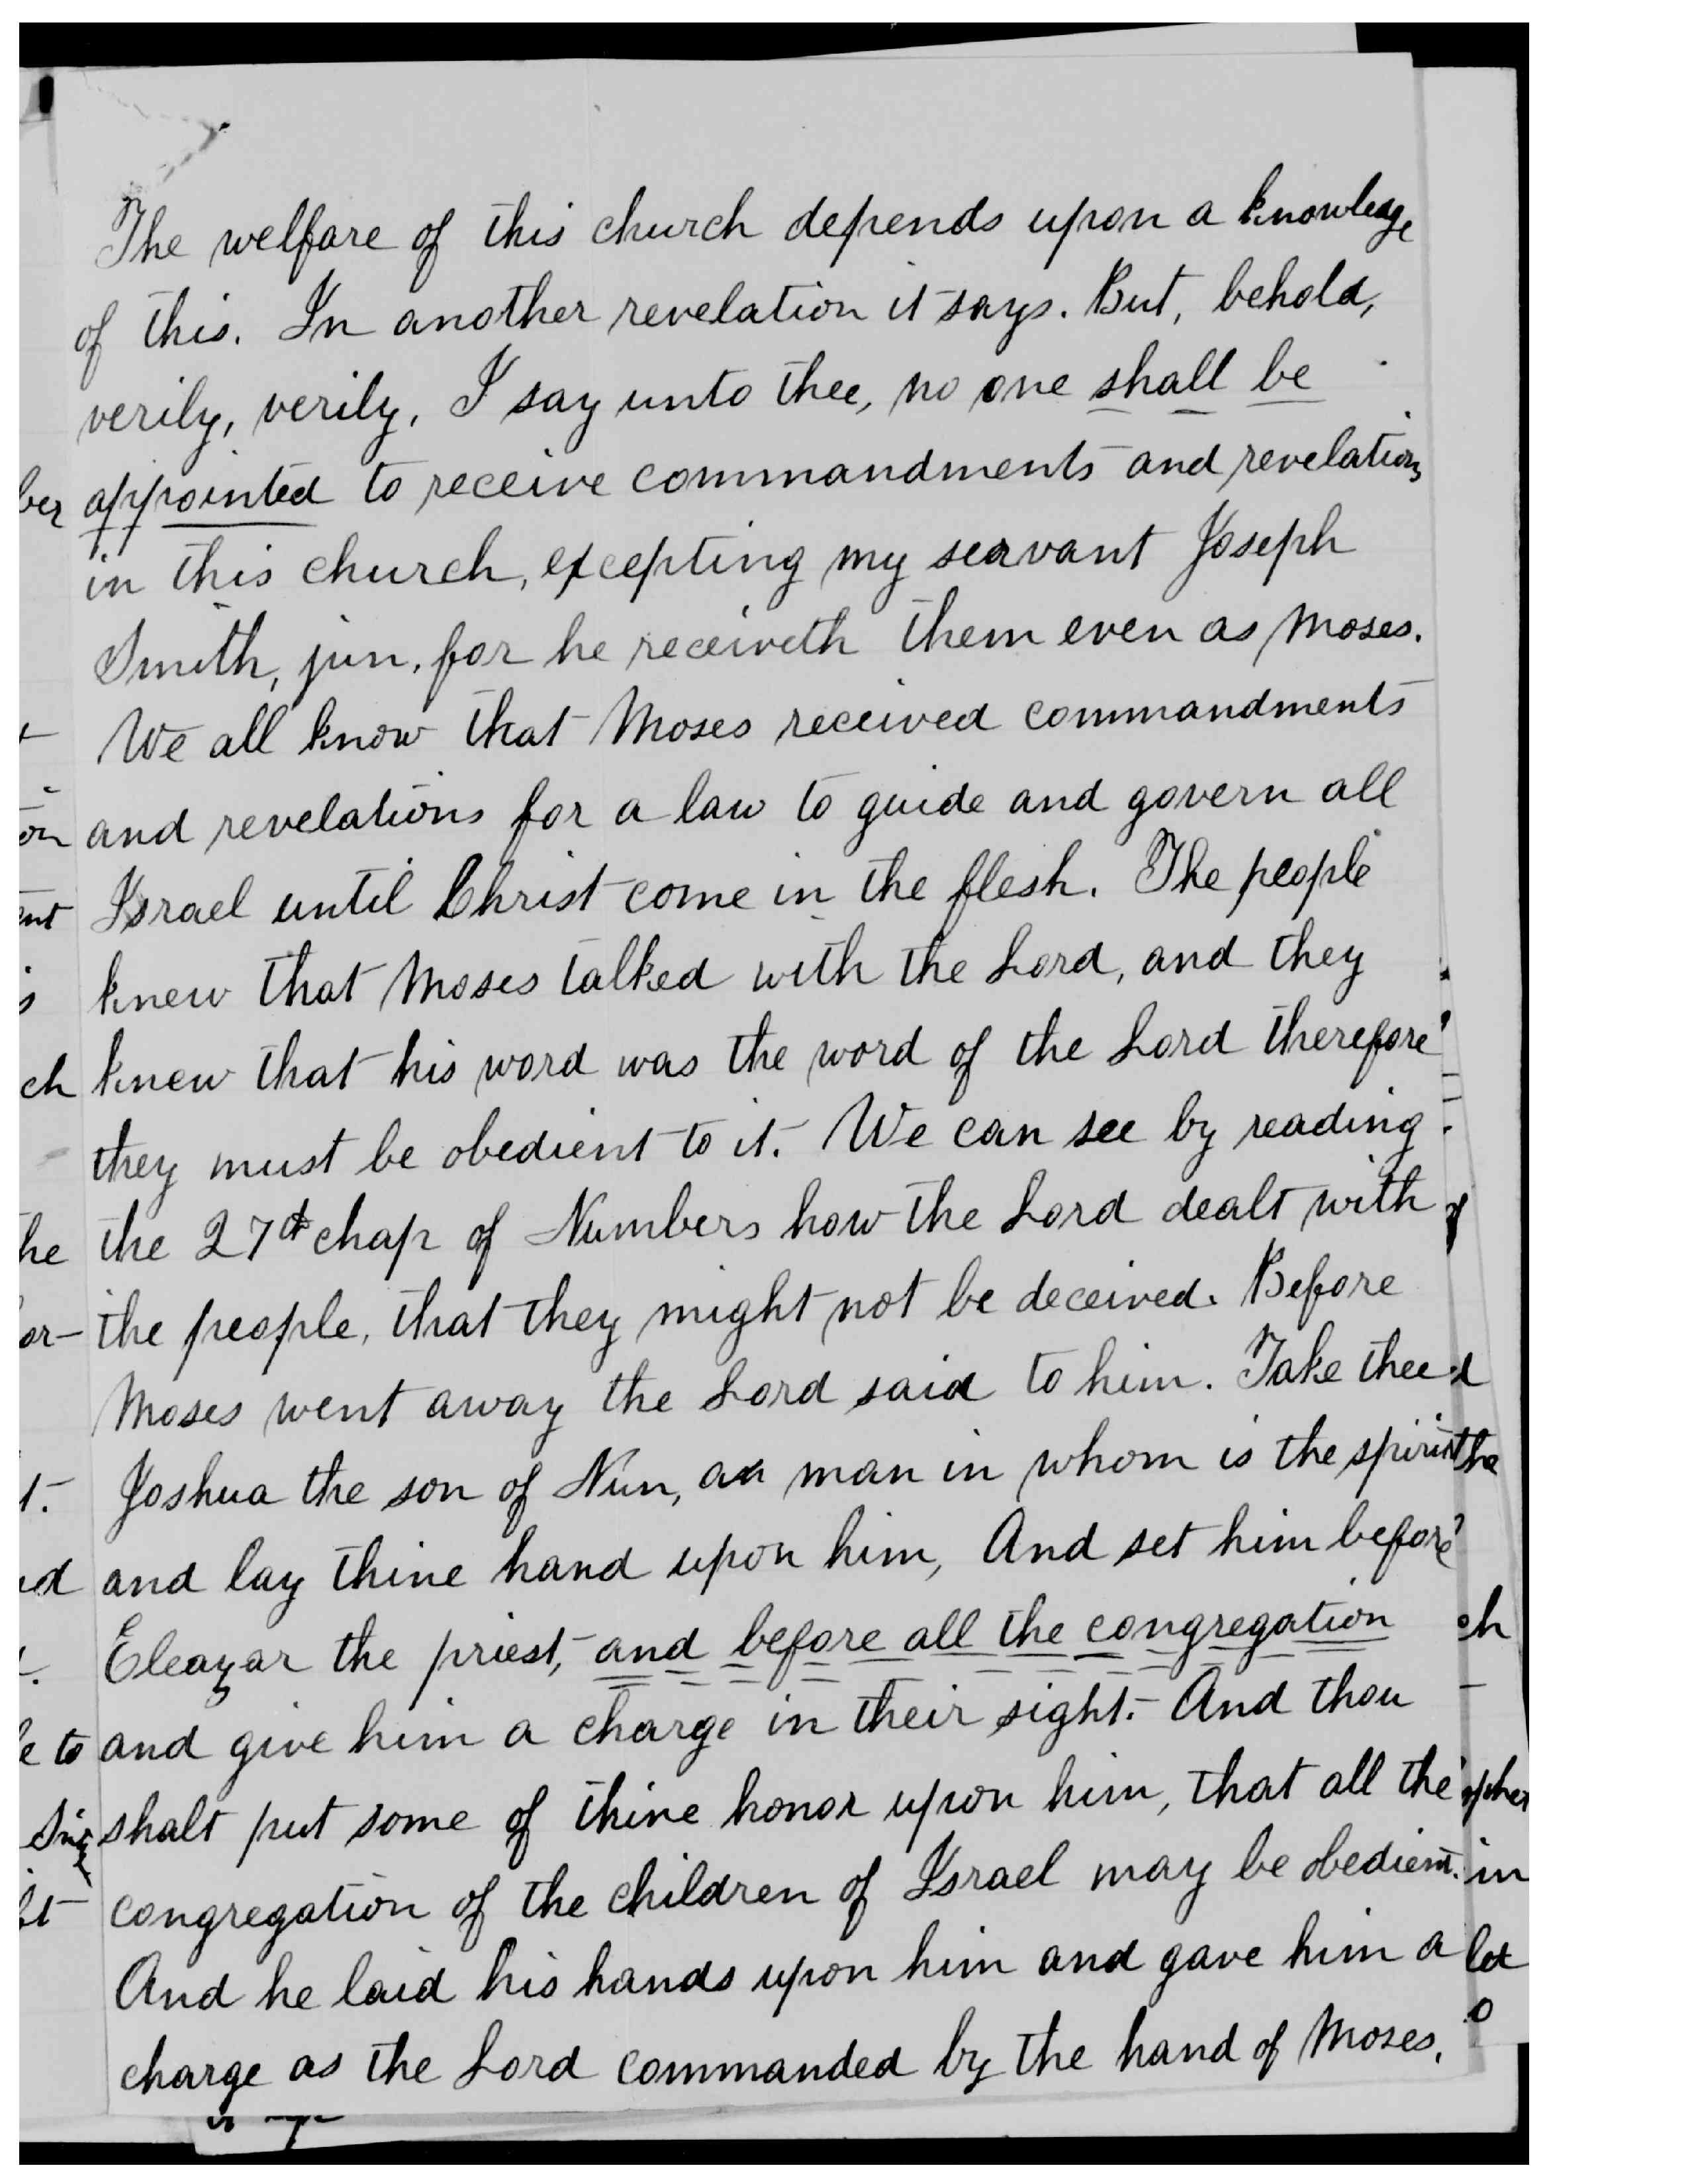 The welfare of this church depends upon a knowledge
of this. In another revelation it says. But, behold,
verily, verily, I say unto thee, no one shall be
appointed to receive commandments and revelations
in this church, excepting my searvant Joseph
Smith, jun, for he receiveth them even as Moses.
We all know that Moses received commandments
and revelations for a law to guide and govern all
Israel until Christ come in the flesh. The people
knew that Moses talked with the Lord, and they
knew that his word was the word of the Lord therefore
they must be obedient to it. We can see by reading
the 27th chap of Numbers how the Lord dealt with
the people, that they might not be deceived. Before
Moses went away the Lord said to him. Take thee
Joshua the son of Nun, a man in whom is the spirit
and lay thine hand upon him, And set him before
Eleazar the priest, and before all the congregation
and give him a charge in their sight. And thou
shalt put some of thine honor upon him, that all the
congregation of the children of Israel may be obedient.
And he laid his hands upon him and gave him a
charge as the Lord commanded by the hand of Moses.